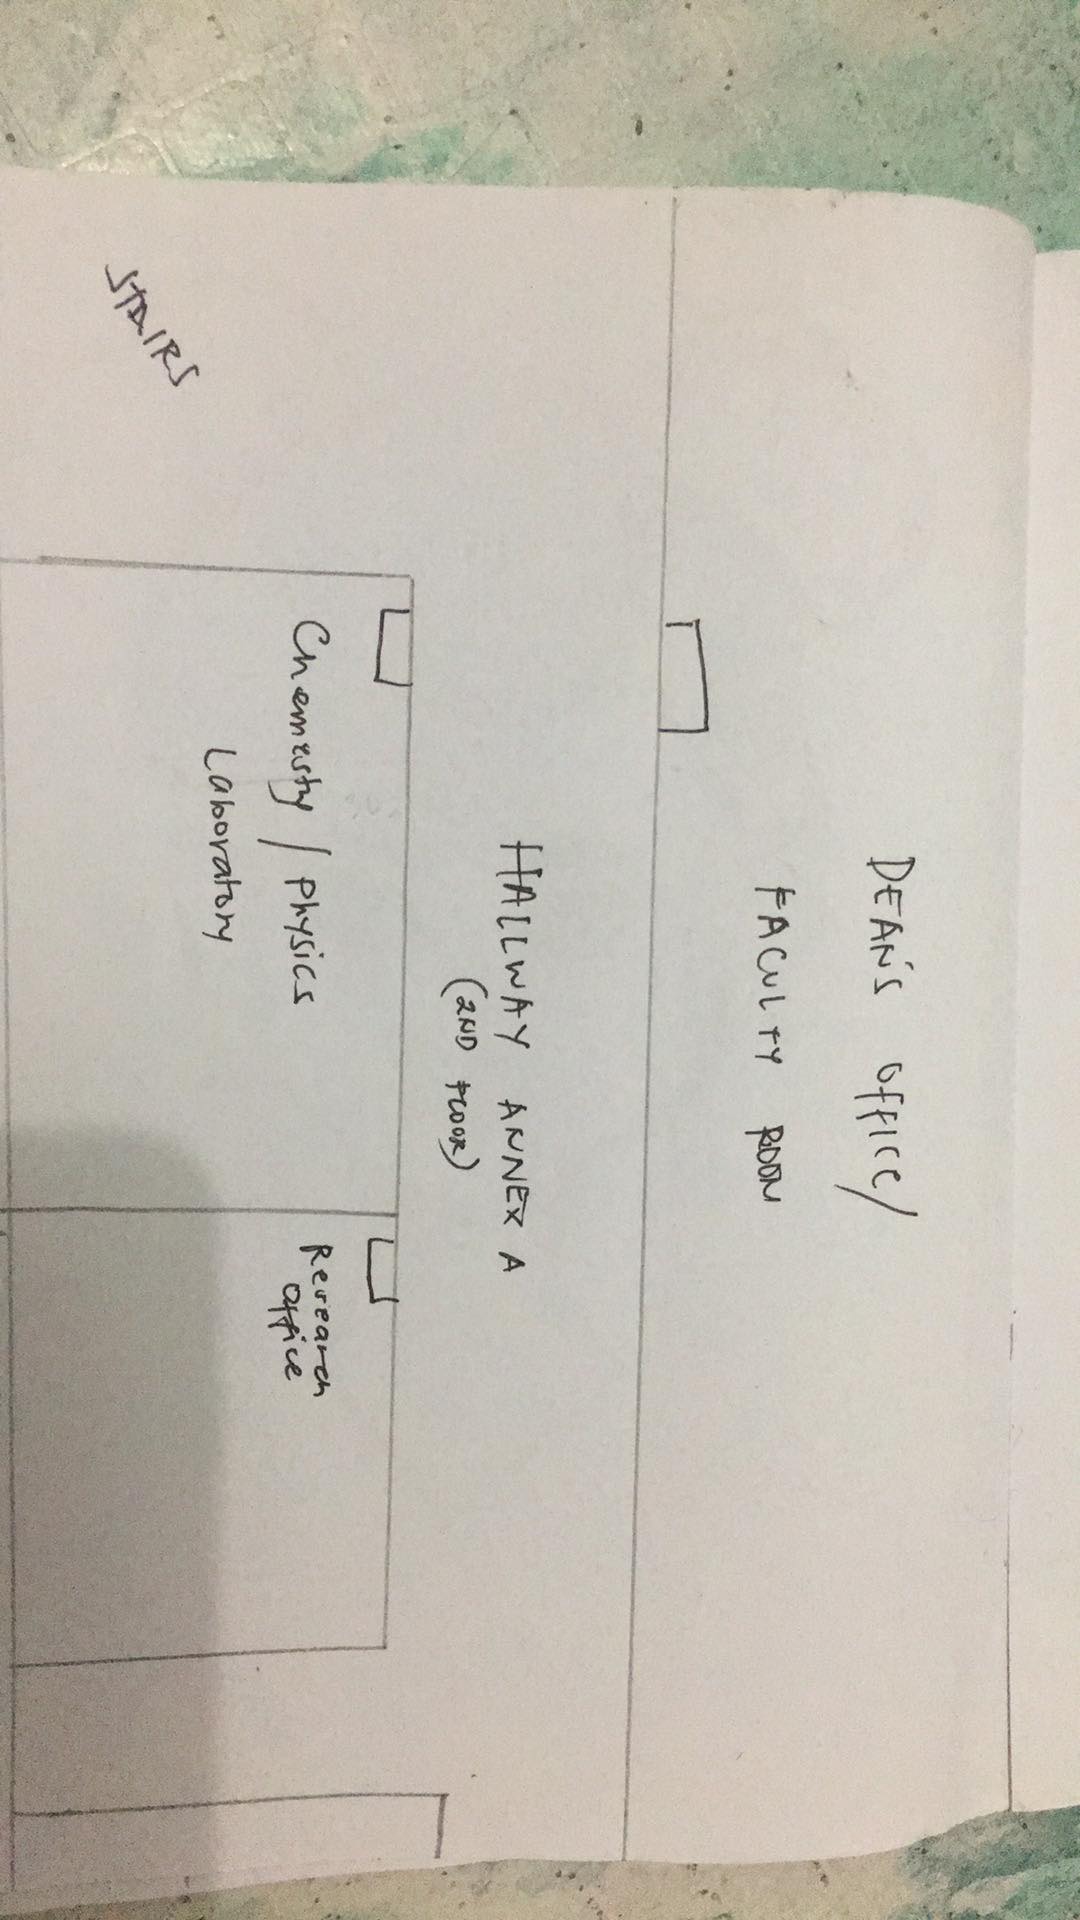 DEAN'S OFFICE/
FACULTY ROOM
HALLWAY ANNEX A
(2ND FLOOR)
Chemestry / Physics
Laboratory
Research
Office
STAIRS